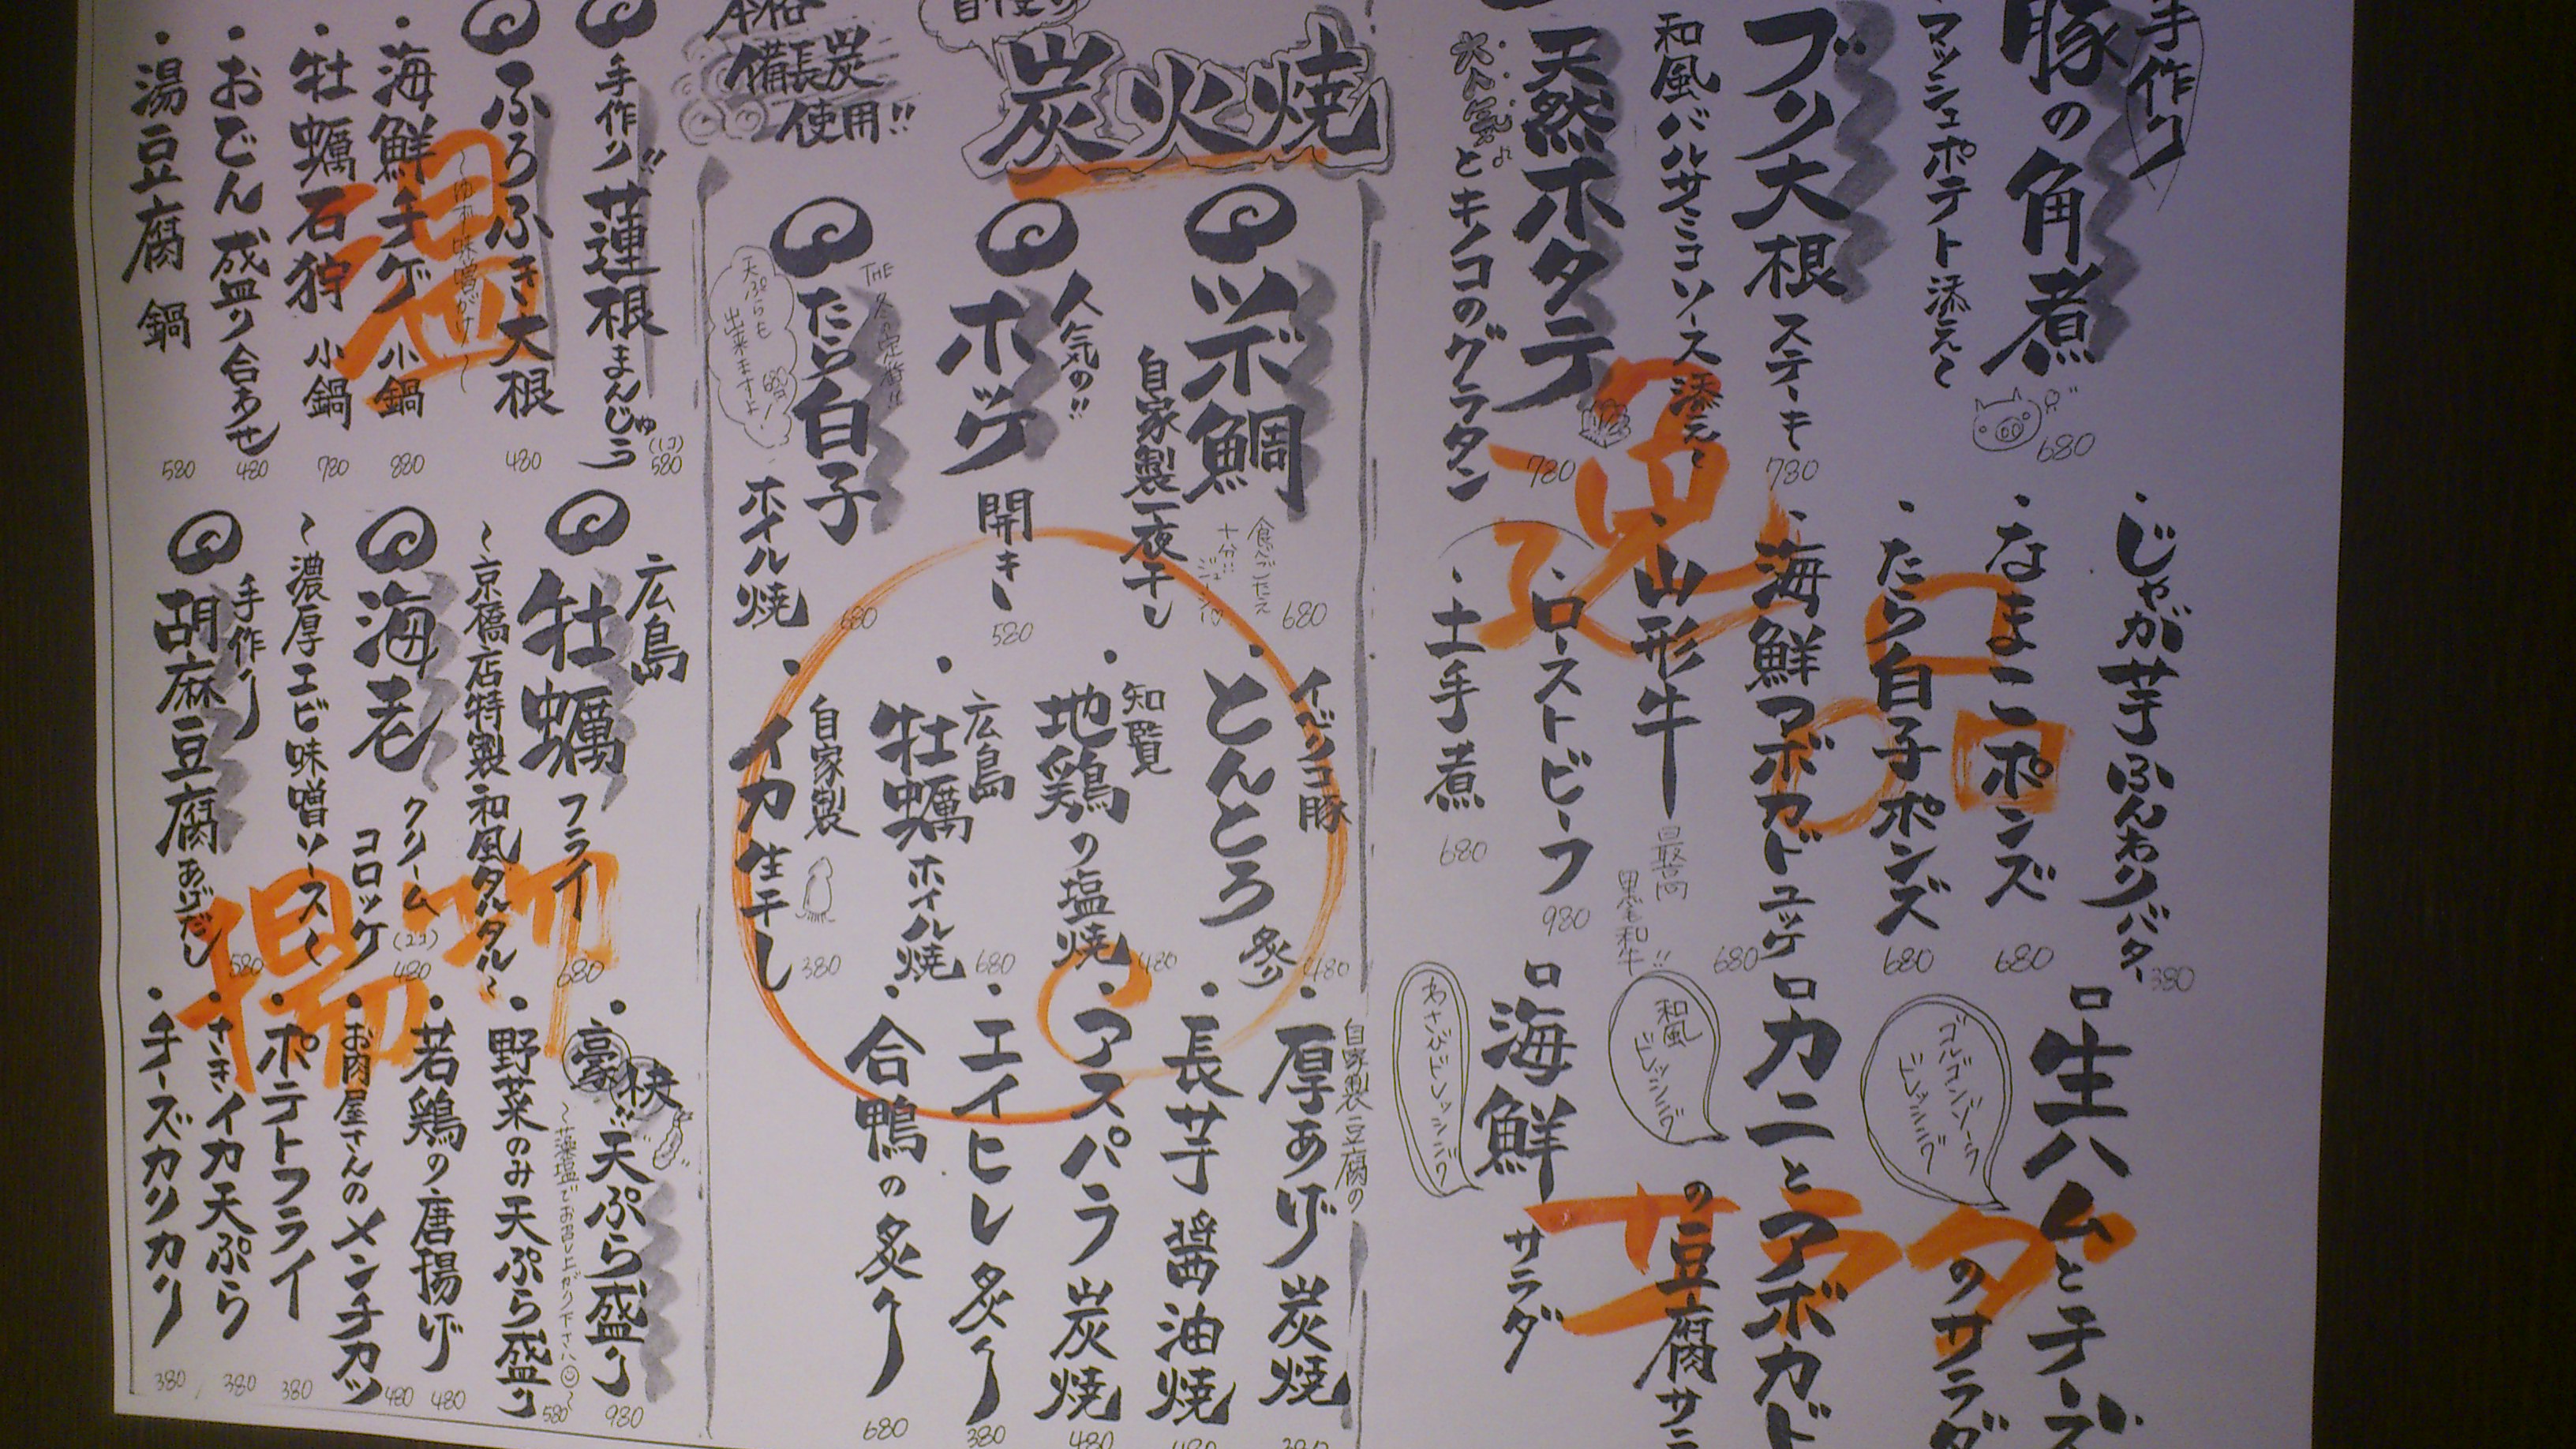 手作り
豚の角煮
マッシュポテト添え〜
680
ブリ大根
ステーキ
和風バルサミコソース添え〜
780
天然ホタテ
大人気♪
とキノコのグラタン
780
じゃが芋ふんわりバター
380
なまこポンズ
680
たら白子ポンズ
680
海鮮アボカドユッケ
680
山形牛
最高
黒毛和牛!!
ローストビーフ
980
土手煮
680
生ハムとチーズ
のサラダ
ドレッシング
カニとアボカド
の豆腐サラ
和風
ドレッシング
海鮮
サラダ
わさびドレッシング
サラダ
炭火焼
備長炭
使用!!
ツボ鯛
自家製一夜干し
食べごたえ
十分!!
680
人気の!!
ホッケ
開き
580
THE 冬の定番!!
たら白子
ホイル焼
天ぷらも
出来ますよ!
680
680
イベリコ豚
とんとろ
炙り
480
知覧
地鶏の塩焼
480
広島
牡蠣ホイル焼
680
自家製
イカ生干し
380
自家製豆腐の
厚あげ炭焼
380
長芋醤油焼
480
アスパラ炭焼
480
エイヒレ炙り
380
合鴨の炙り
680
温
手作り!!
蓮根まんじゅう
(1コ)
580
ふろふき大根
〜ゆず味噌がけ〜
480
海鮮チゲ小鍋
880
牡蠣石狩小鍋
780
おでん盛り合わせ
480
湯豆腐鍋
580
揚物
広島
牡蠣フライ
〜京橋店特製和風タルタル〜
680
海老クリーム
コロッケ
(2コ)
480
〜濃厚エビ味噌ソース〜
手作り
胡麻豆腐あげだし
580
豪快!!
天ぷら盛り
〜藻塩でお召し上がり下さい〜
980
野菜のみ天ぷら盛り
580
若鶏の唐揚げ
480
お肉屋さんのメンチカツ
480
ポテトフライ
380
さきイカ天ぷら
380
チーズカリカリ
380